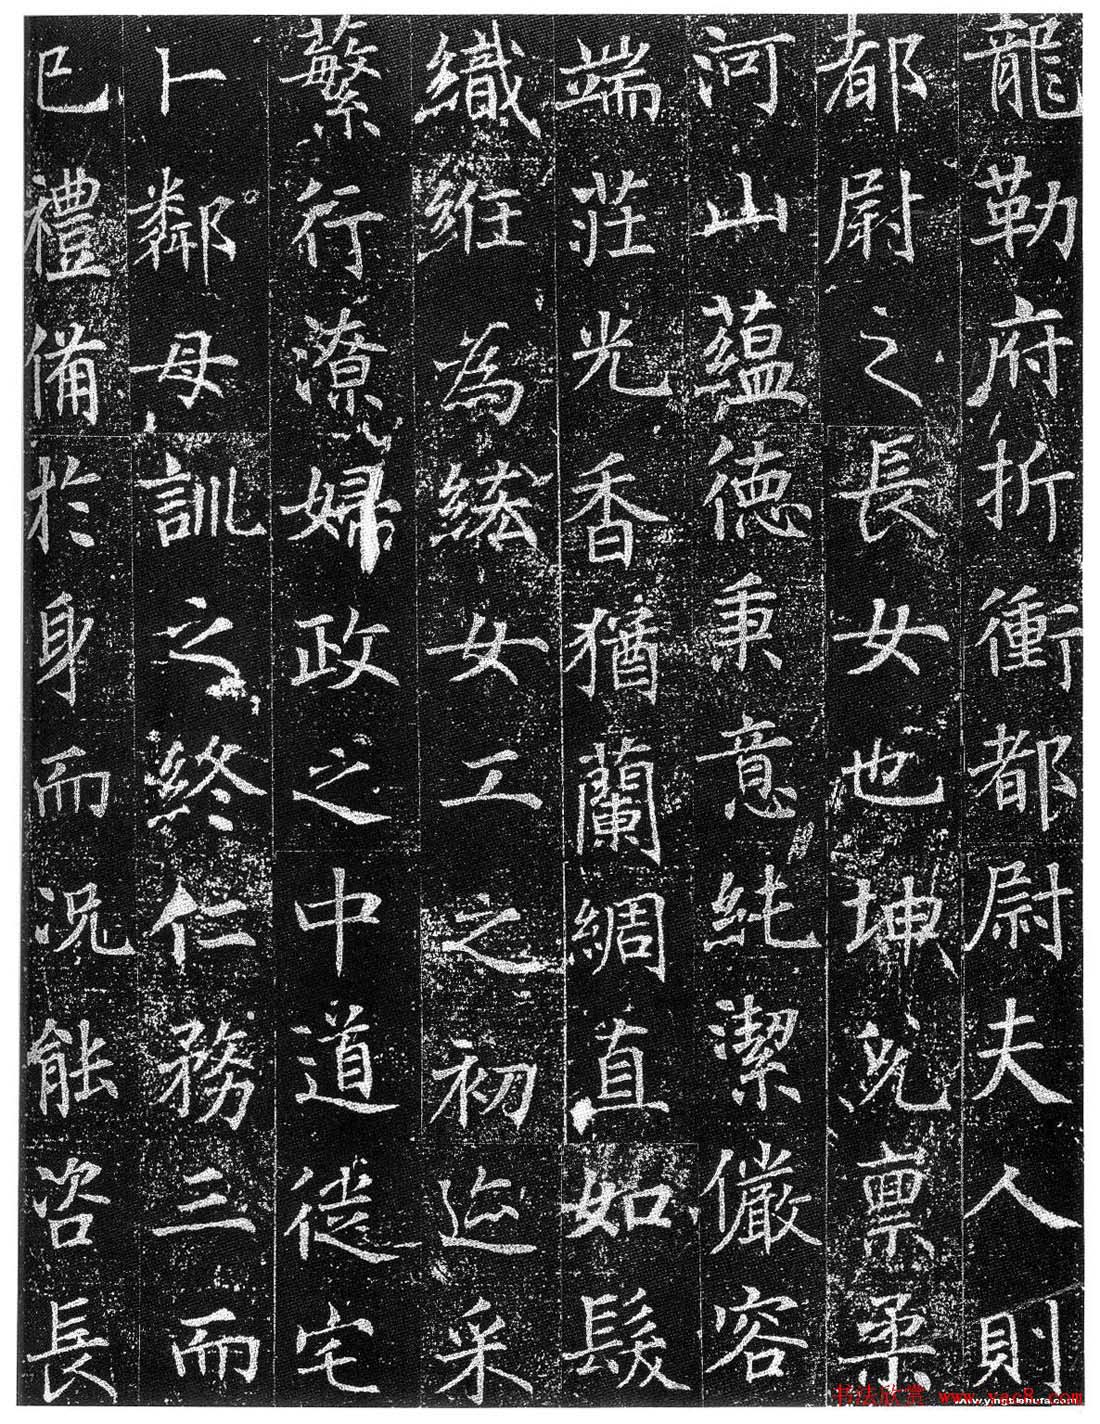 龍勒府折衝都尉夫人則
都尉之長女也坤兌稟柔
河山蘊德秉意純潔儼容
端莊光香猶蘭綢直如髮
織紝為綌女工之初迹采
蘩行潦婦政之中道徙宅
卜鄰母訓之終仁務三而
已禮備於身而況能咨長
书法欣赏 www.yac8.com
www.yingbishufa.com